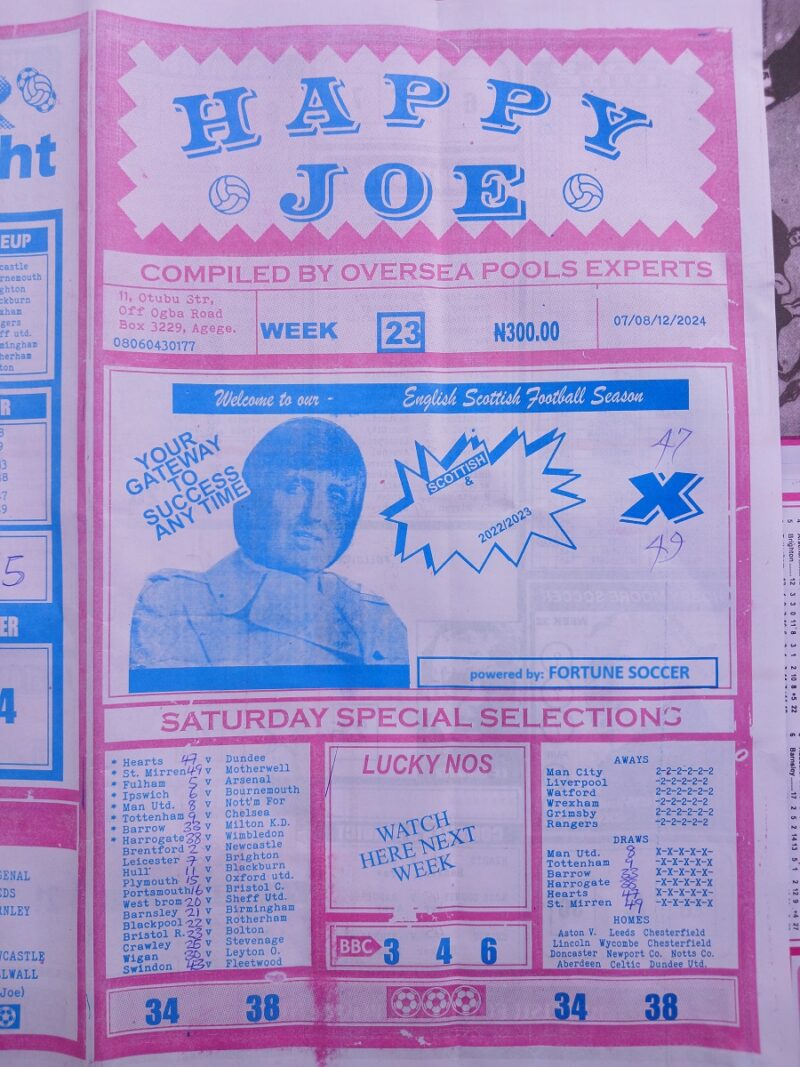 HAPPY
JOE
COMPILED BY OVERSEA POOLS EXPERTS
11, Otubu Str,
Off Ogba Road
Box 3229, Agege.
08060430177
WEEK 23
₦300.00
07/08/12/2024
Welcome to our - English Scottish Football Season
YOUR
GATEWAY
TO
SUCCESS
ANY TIME
SCOTTISH
&
2022/2023
47
X
49
powered by: FORTUNE SOCCER
SATURDAY SPECIAL SELECTIONS
* Hearts 47 v Dundee
* St. Mirren 49 v Motherwell
* Fulham 5 v Arsenal
* Ipswich 6 v Bournemouth
* Man Utd. 8 v Nott'm For
* Tottenham 9 v Chelsea
* Barrow 33 v Milton K.D.
* Harrogate 38 v Wimbledon
Brentford 2 v Newcastle
Leicester 7 v Brighton
Hull' 11 v Blackburn
Plymouth 15 v Oxford utd.
Portsmouth 16 v Bristol C.
West brom 20 v Sheff Utd.
Barnsley 21 v Birmingham
Blackpool 22 v Rotherham
Bristol R. 23 v Bolton
Crawley 25 v Stevenage
Wigan 30 v Leyton O.
Swindon 43 v Fleetwood
LUCKY NOS
WATCH
HERE NEXT
WEEK
BBC 3 4 6
AWAYS
Man City 2-2-2-2-2-2
Liverpool -2-2-2-2-2
Watford 2-2-2-2-2-2
Wrexham -2-2-2-2-2
Grimsby 2-2-2-2-2-2
Rangers -2-2-2-2-2
DRAWS
Man Utd. 8 X-X-X-X-X
Tottenham 9 -X-X-X-X-X
Barrow 33 X-X-X-X-X
Harrogate 38 X-X-X-X-X
Hearts 47 -X-X-X-X-X
St. Mirren 49 X-X-X-X-X
HOMES
Aston V. Leeds Chesterfield
Lincoln Wycombe Chesterfield
Doncaster Newport Co. Notts Co.
Aberdeen Celtic Dundee Utd.
34 38 34 38
ht
EUP
5
ER
4
Joe)
Brighton
Barnsley